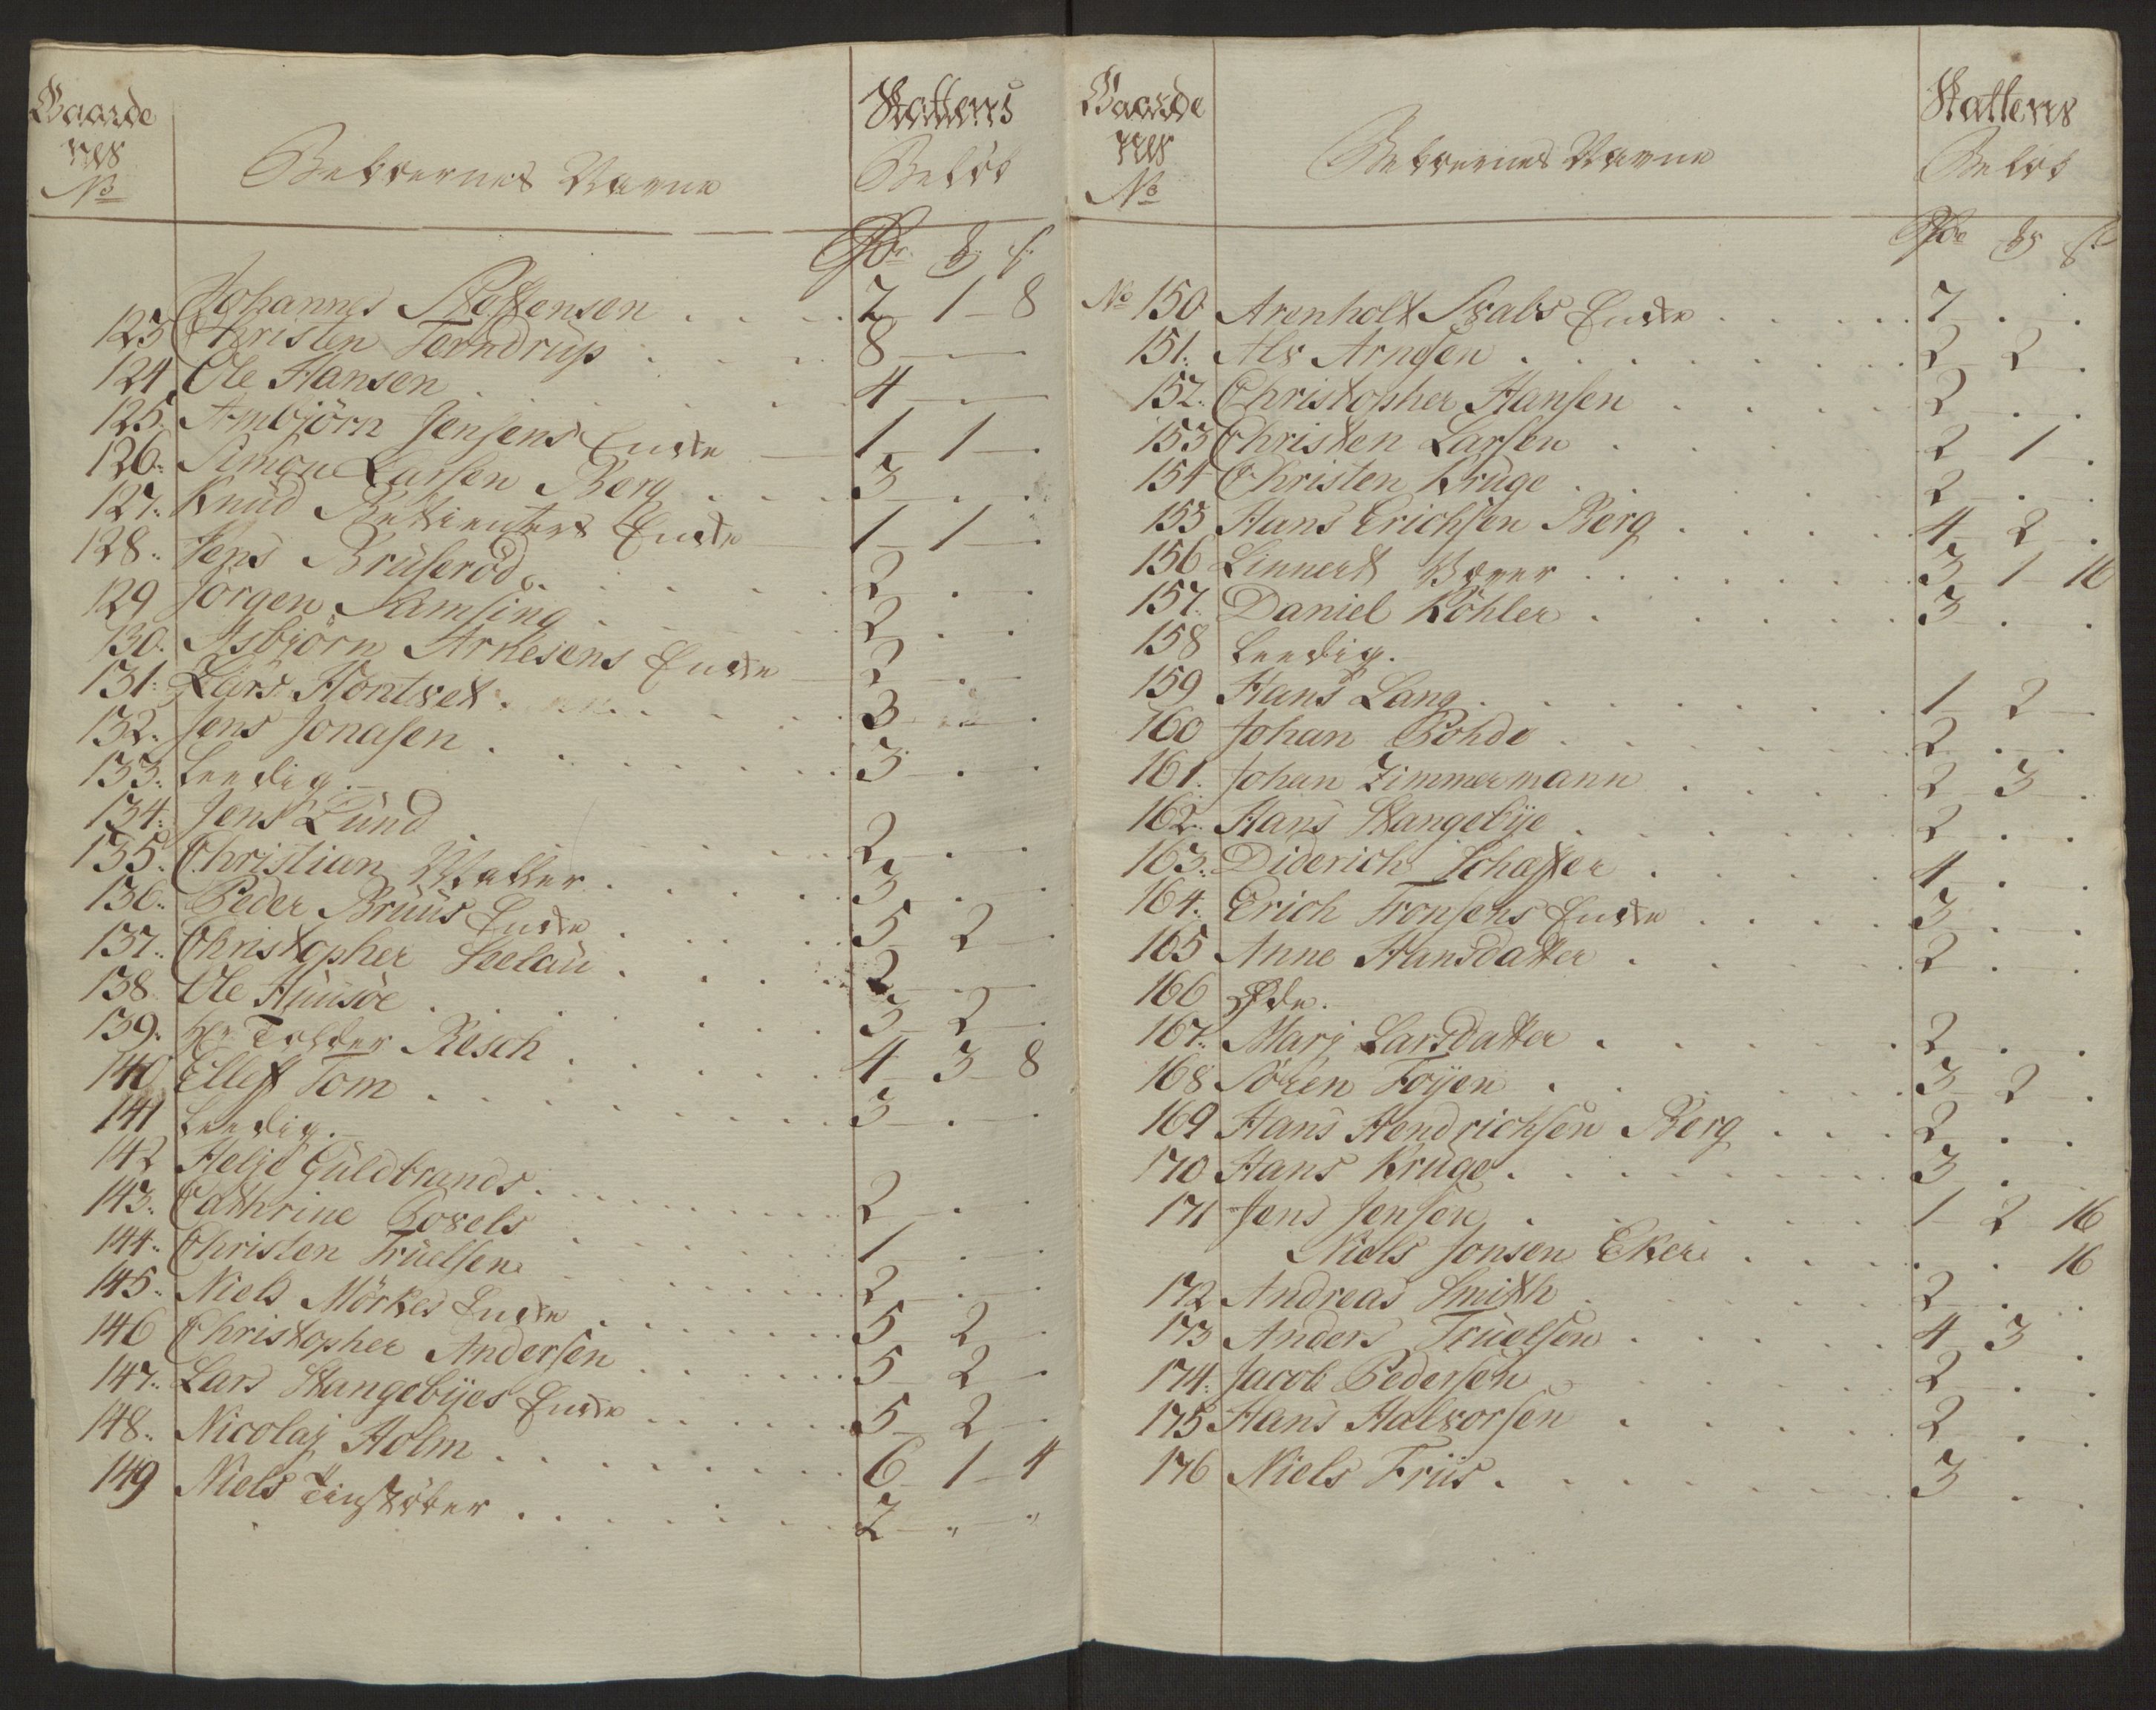 Gaarde
nes
No
Beboernes Navne
Skattens
Beløb
Rdr. ß
Johannes Steffensen . . . . 2 - 1 - 8
123 Christen Terndrup . . . 8 -
124 Ole Hansen . . . . 4 -
125. Ambjörn Jensens Enke - 1 - 1 - .
126. Simon Larsen Berg . . . 3 - . - .
127. Knud Enke - 1 - 1 - .
128. Jens Bruserød . . . . 2 - . - .
129 Jörgen Samsing . . . . 2 . .
130. Asbjörn Arnesens Enke 2 - . -
131. Lars Höntvet . . . . 3 - . - .
132. Jens Jonasen . . . . 3 - . - .
133. Leedig. -
134. Jens Lund . . . . 2 - . - .
135. Christian . . . . 3 . .
136. Peder Bruus Enke . . . . 5 - 2 - .
137. Christopher Seelau . . . . 2 - . -
138. Ole Huusöe . . . . 3 - 2 - .
139. Hr Tolder Resch . . . . 4 - 3 - 8
140 Elleff Tom . . . . 3 - . - .
141 Leedig. -
142 Helje Guldbrands . . . . 2 - . - .
143. Cathrine Povels . . . . 1 . - .
144. Christen Truelsen . . . . 2 - . - .
145. Niels Mörkes Enke . . . . 5 - 2 - .
146 Christopher Andersen . . . . 5 - 2 - .
147. Lars Stangebÿes Enke . . . . 5 - 2 - .
148. Nicolaj Holm . . . . 6 - 1 - 4
149 Niels Tinstöber . . . . 2 - " - "
Gaarde
nes
No
Beboernes Navne
Skattens
Beløb
Rdr ß
No 150 Arenholt Svabs Enke . . . . 7 - . - .
151. Alv Arngsen . . . . 2 - 2 - .
152. Christopher Hansen . . . . 2 - . - .
153 Christen Larsen . . . . 2 1 - .
154 Christen Kruge . . . . 2 - . - .
155 Hans Erichsen Berg . . . . 4 - 2 - .
156 Linnert Væver . . . . 3 - 1 - 16
157. Daniel Köhler . . . . 3 - . - .
158 Leedig.
159 Hans Lang . . . . 1 - 2 -
160 Johan Bohde . . . . 2 - . - .
161. Johan Zimmermann . . . . 2 - 3 - .
162. Hans Stangebÿe . . . . 2 - . - .
163. Diderich Schaffer . . . . 4 - . - .
164. Erich Tronsens Enke . . . . 3 - . - .
165 Anne Hansdatter . . . . 2 - . - .
166 Øde.
167. Marj Larsdatter . . . . 2 - . - .
168 Sören Foÿen . . . . 3 - 2 - .
169 Hans Hendrichsen Berg . . . 2 - . - .
170 Hans Kruge . . . . 3 - . -
171 Jens Jensen . . . . 1 - 2 - 16
Niels Jonsen Eker . . . . 16
172 Andreas Smith . . . . 2 - . .
173 Anders Truelsen . . . . 4 - 3 - .
174. Jacob Pedersen . . . . 2 - . - .
175 Hans Halvorsen . . . . 2 - . - .
176 Niels Friis . . . . 3 - . - .